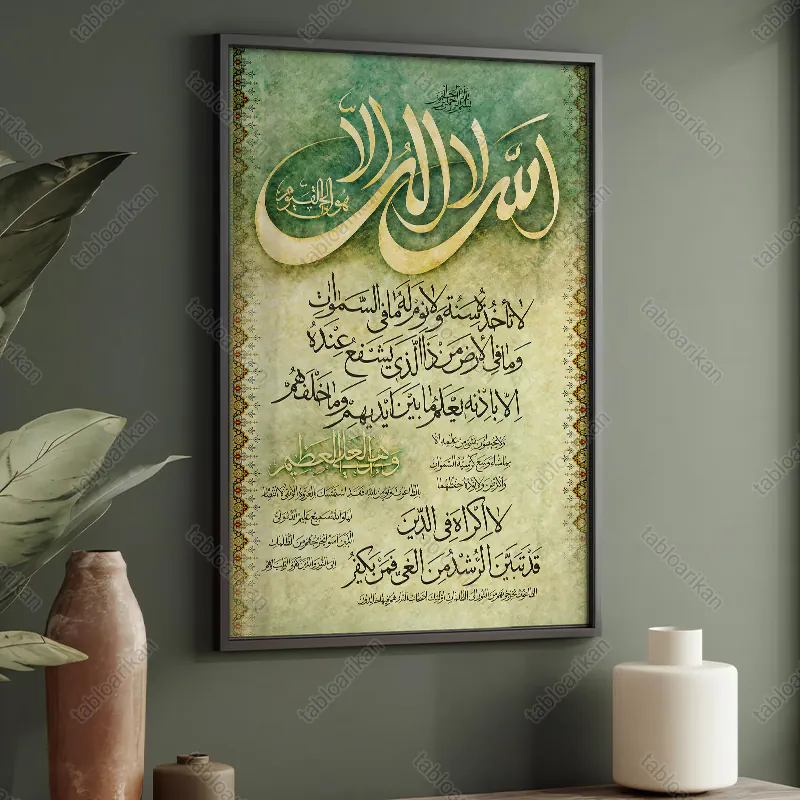 بسم الله الرحمن الرحیم
الله لا اله الا
هو الحی القیوم
لَا تَأْخُذُهُ سِنَةٌ وَلَا نَوْمٌ لَهُ مَا فِی السَّمٰوَاتِ
وَمَا فِی الْاَرْضِ مَنْ ذَا الَّذِی یَشْفَعُ عِنْدَهُ
اِلَّا بِاِذْنِهِ یَعْلَمُ مَا بَیْنَ اَیْدِیهِمْ وَمَا خَلْفَهُمْ
ولا یحیطون بشیء من علمه الا
بما شاء وسع کرسیه السموات
والارض ولا یؤده حفظهما
وهو العلی العظیم
لَا اِکْرَاهَ فِی الدِّینِ
قَدْ تَبَیَّنَ الرُّشْدُ مِنَ الْغَیِّ فَمَنْ یَکْفُرْ
tabloarikan